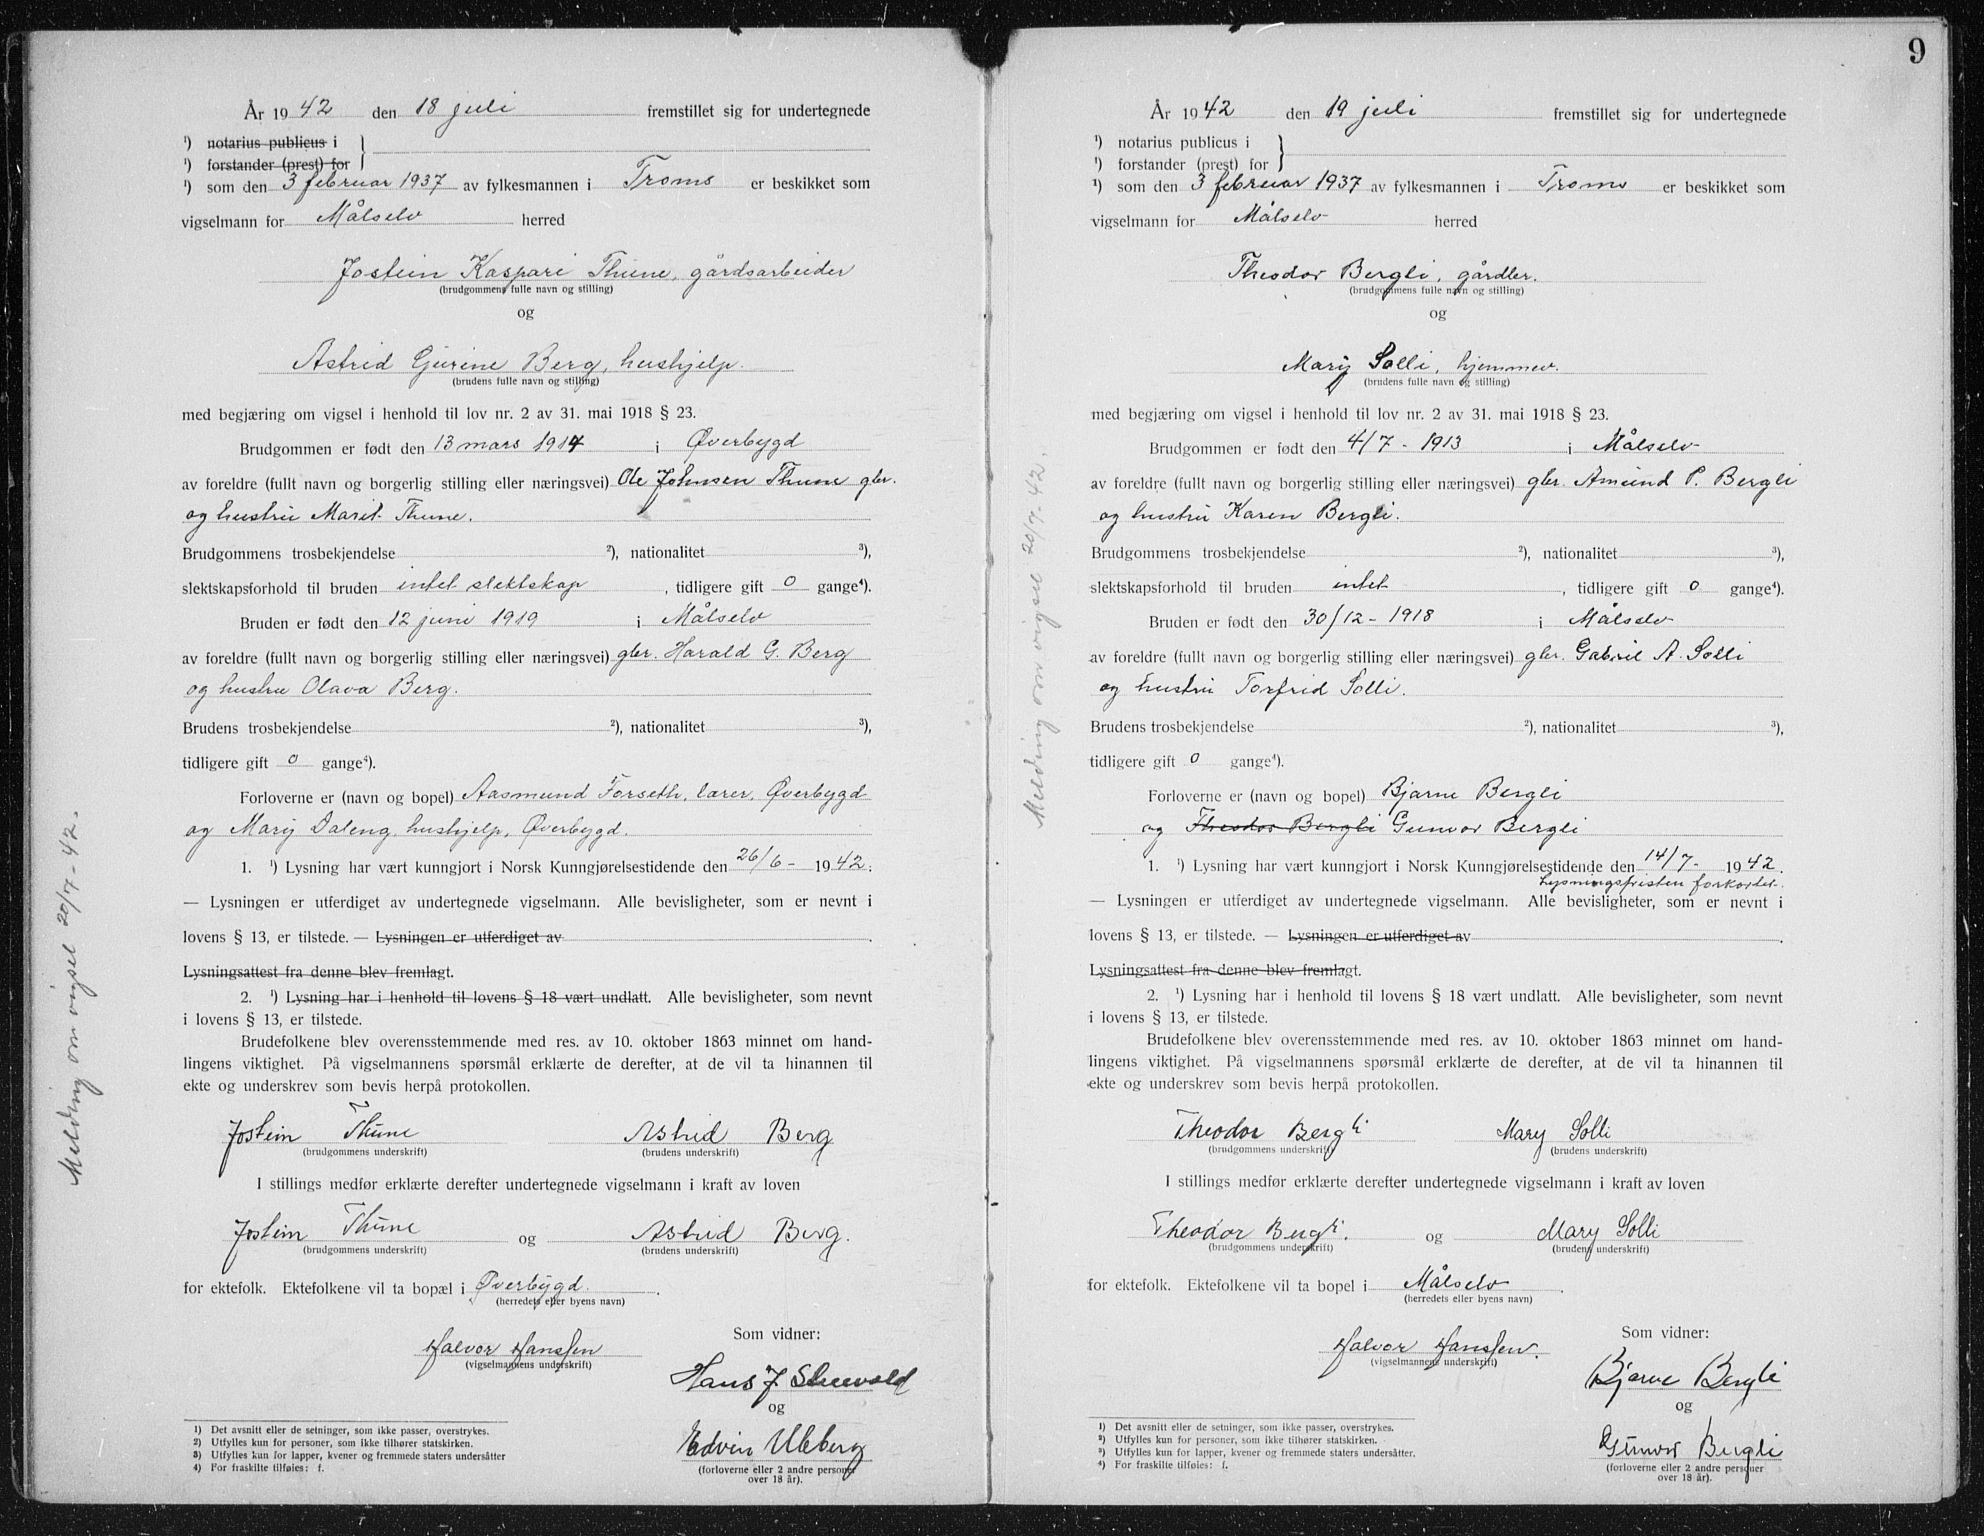 År 1942 den 18 juli fremstillet sig for undertegnede
¹) notarius publicus i
¹) forstander (prest) for
¹) som den 3 februar 1937 av fylkesmannen i Troms er beskikket som
vigselmann for Målselv herred
Jostein Kaspari Thune, gårdsarbeider
(brudgommens fulle navn og stilling)
og
Astrid Gurine Berg, hushjelp.
(brudens fulle navn og stilling)
med begjæring om vigsel i henhold til lov nr. 2 av 31. mai 1918 § 23.
Brudgommen er født den 13 mars 1914 i Øverbygd
av foreldre (fullt navn og borgerlig stilling eller næringsvei) Ole Johnsen Thune gbr.
og hustru Marit Thune.
Brudgommens trosbekjendelse ²), nationalitet ³),
slektskapsforhold til bruden intet slektskap, tidligere gift 0 gange⁴).
Bruden er født den 12 juni 1919 i Målselv
av foreldre (fullt navn og borgerlig stilling eller næringsvei) gbr. Harald G. Berg
og hustru Olava Berg.
Brudens trosbekjendelse ²), nationalitet ³),
tidligere gift 0 gange⁴).
Forloverne er (navn og bopel) Aasmund Forseth, lærer, Øverbygd
og Mary Daleng, hushjelp, Øverbygd.
1. ¹) Lysning har vært kunngjort i Norsk Kunngjørelsestidende den 26/6- 1942.
— Lysningen er utferdiget av undertegnede vigselmann. Alle bevisligheter, som er nevnt i
lovens § 13, er tilstede. — Lysningen er utferdiget av .
Lysningsattest fra denne blev fremlagt.
2. ¹) Lysning har i henhold til lovens § 18 vært undlatt. Alle bevisligheter, som nevnt
i lovens § 13, er tilstede.
Brudefolkene blev overensstemmende med res. av 10. oktober 1863 minnet om hand-
lingens viktighet. På vigselmannens spørsmål erklærte de derefter, at de vil ta hinannen til
ekte og underskrev som bevis herpå protokollen.
Jostein Thune Astrid Berg
(brudgommens underskrift) (brudens underskrift)
I stillings medfør erklærte derefter undertegnede vigselmann i kraft av loven
Jostein Thune og Astrid Berg.
(brudgommens underskrift) (brudens underskrift)
for ektefolk. Ektefolkene vil ta bopæl i Øverbygd.
(herredets eller byens navn)
Halvor Hanssen Som vidner:
(vigselmannens underskrift)
Hans J
og
Edvin Uleberg
(forloverne eller 2 andre personer
over 18 år).
1) Det avsnitt eller de setninger, som ikke passer, overstrykes.
2) Utfylles kun for personer, som ikke tilhører statskirken.
3) Utfylles kun for lapper, kvener og fremmede staters undersåtter
4) For fraskilte tilføies: f.
Melding om vigsel 20/7-42.
9
År 1942 den 19 juli fremstillet sig for undertegnede
¹) notarius publicus i
¹) forstander (prest) for
¹) som den 3 februar 1937 av fylkesmannen i Troms er beskikket som
vigselmann for Målselv herred
Theodor Bergli, gårdbr.
(brudgommens fulle navn og stilling)
og
Mary Solli, hjemmev.
(brudens fulle navn og stilling)
med begjæring om vigsel i henhold til lov nr. 2 av 31. mai 1918 § 23.
Brudgommen er født den 4/7 - 1913 i Målselv
av foreldre (fullt navn og borgerlig stilling eller næringsvei) gbr. Amund P. Bergli
og hustru Karen Bergli.
Brudgommens trosbekjendelse ²), nationalitet ³),
slektskapsforhold til bruden intet, tidligere gift 0 gange⁴).
Bruden er født den 30/12 - 1918 i Målselv
av foreldre (fullt navn og borgerlig stilling eller næringsvei) gbr. Gabriel A. Solli
og hustru Torfrid Solli.
Brudens trosbekjendelse ²), nationalitet ³),
tidligere gift 0 gange⁴).
Forloverne er (navn og bopel) Bjarne Bergli
og Theodor Bergli Gunvor Bergli
1. ¹) Lysning har vært kunngjort i Norsk Kunngjørelsestidende den 14/7- 1942.
Lysningsfristen forkortet.
— Lysningen er utferdiget av undertegnede vigselmann. Alle bevisligheter, som er nevnt i
lovens § 13, er tilstede. — Lysningen er utferdiget av .
Lysningsattest fra denne blev fremlagt.
2. ¹) Lysning har i henhold til lovens § 18 vært undlatt. Alle bevisligheter, som nevnt
i lovens § 13, er tilstede.
Brudefolkene blev overensstemmende med res. av 10. oktober 1863 minnet om hand-
lingens viktighet. På vigselmannens spørsmål erklærte de derefter, at de vil ta hinannen til
ekte og underskrev som bevis herpå protokollen.
Theodor Bergli Mary Solli
(brudgommens underskrift) (brudens underskrift)
I stillings medfør erklærte derefter undertegnede vigselmann i kraft av loven
Theodor Bergli. og Mary Solli
(brudgommens underskrift) (brudens underskrift)
for ektefolk. Ektefolkene vil ta bopel i Målselv.
(herredets eller byens navn)
Halvor Hanssen. Som vidner:
(vigselmannens underskrift)
Bjarne Bergli
og
Gunvor Bergli
(forloverne eller 2 andre personer
over 18 år).
1) Det avsnitt eller de setninger, som ikke passer, overstrykes.
2) Utfylles kun for personer, som ikke tilhører statskirken.
3) Utfylles kun for lapper, kvener og fremmede staters undersåtter.
4) For fraskilte tilføies: f.
Melding om vigsel 20/7-42.